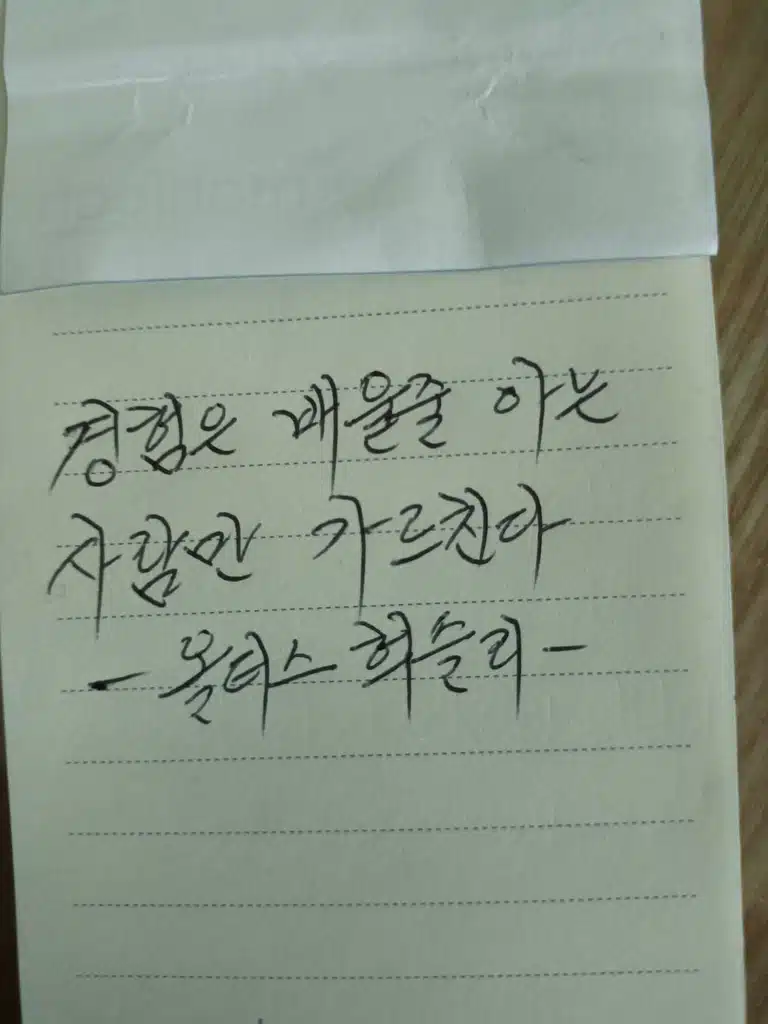 경험은 배울줄 아는
사람만 가르친다
- 올더스 헉슬리 -